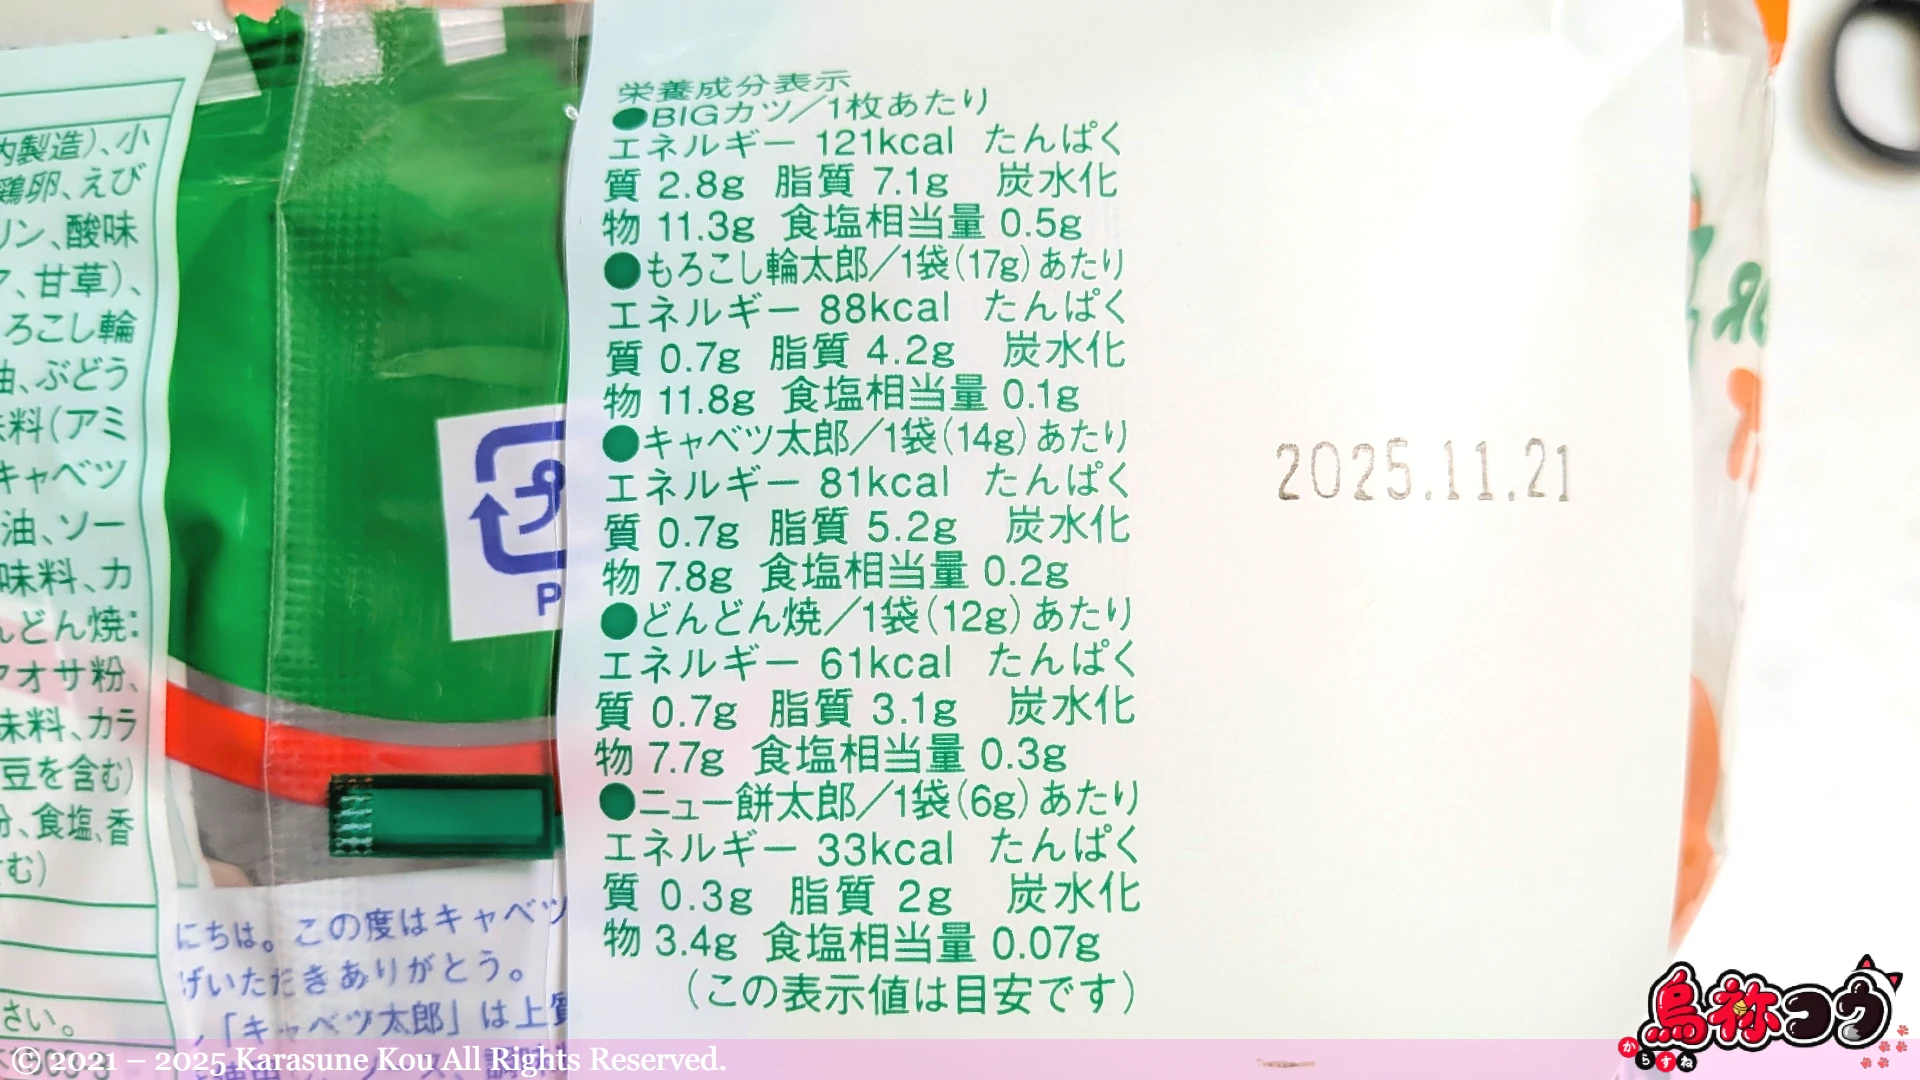 内製造)、小
鶏卵、えび
リン、酸味
、甘草)、
ろこし輪
油、ぶどう
味料(アミ
キャベツ
油、ソー
味料、カ
んどん焼:
アオサ粉、
味料、カラ
豆を含む)
分、食塩、香
含む)
さい。
プ
P
にちは。この度はキャベツ
げいただきありがとう。
、「キャベツ太郎」は上質
栄養成分表示
●BIGカツ/1枚あたり
エネルギー 121kcal たんぱく
質 2.8g 脂質 7.1g 炭水化
物 11.3g 食塩相当量 0.5g
●もろこし輪太郎/1袋(17g)あたり
エネルギー 88kcal たんぱく
質 0.7g 脂質 4.2g 炭水化
物 11.8g 食塩相当量 0.1g
●キャベツ太郎/1袋(14g)あたり
エネルギー 81kcal たんぱく
質 0.7g 脂質 5.2g 炭水化
物 7.8g 食塩相当量 0.2g
●どんどん焼/1袋(12g)あたり
エネルギー 61kcal たんぱく
質 0.7g 脂質 3.1g 炭水化
物 7.7g 食塩相当量 0.3g
●ニュー餅太郎/1袋(6g)あたり
エネルギー 33kcal たんぱく
質 0.3g 脂質 2g 炭水化
物 3.4g 食塩相当量 0.07g
(この表示値は目安です)
2025.11.21
烏祢コウ
からすね
© 2021 – 2025 Karasune Kou All Rights Reserved.